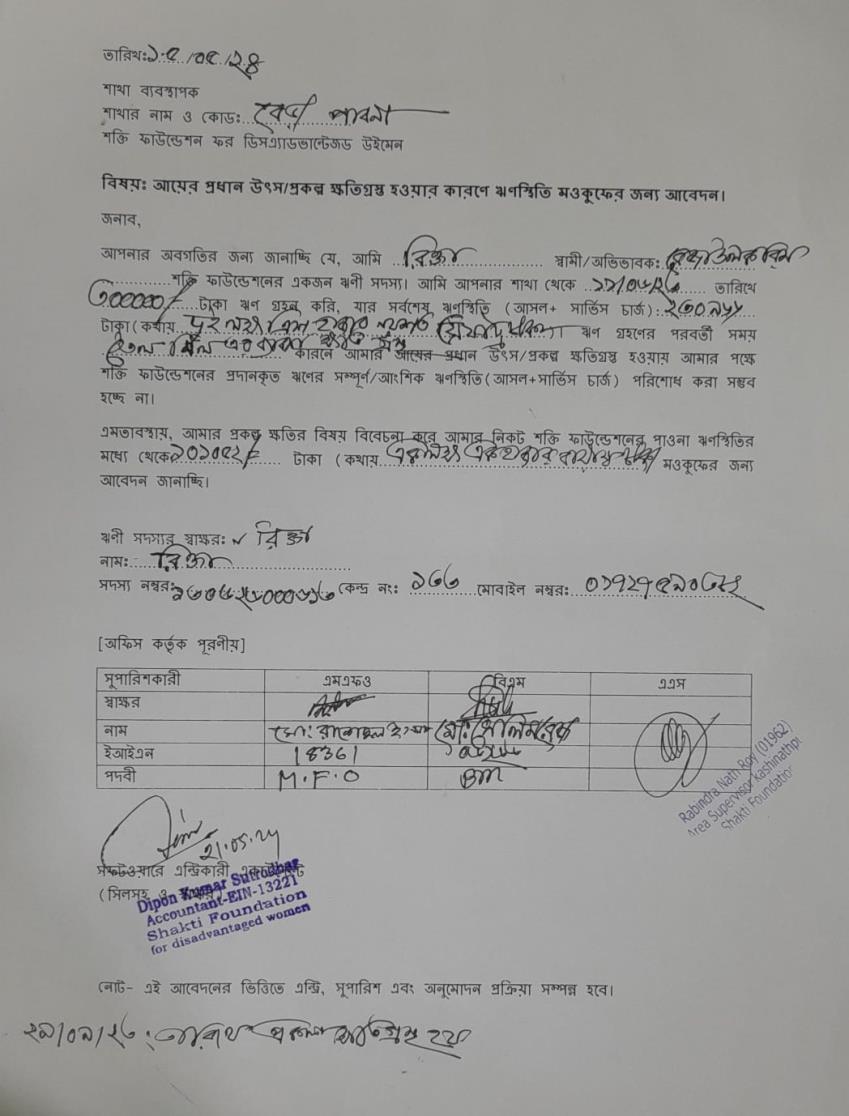 তারিখ: ১৫/০৫/২৪
শাখা ব্যবস্থাপক
শাখার নাম ও কোড: পাবনা
শক্তি ফাউন্ডেশন ফর ডিসএ্যাডভান্টেজড উইমেন
বিষয়: আয়ের প্রধান উৎস/প্রকল্প ক্ষতিগ্রস্থ হওয়ার কারণে ঋণস্থিতি মওকুফের জন্য আবেদন।
জনাব,
আপনার অবগতির জন্য জানাচ্ছি যে, আমি রিক্তা স্বামী/অভিভাবক:
শক্তি ফাউন্ডেশনের একজন ঋনী সদস্য। আমি আপনার শাখা থেকে তারিখে
৩০০০০০/= টাকা ঋণ গ্রহন করি, যার সর্বশেষ ঋণস্থিতি (আসল+ সার্ভিস চার্জ):
টাকা(কথায় ঋণ গ্রহণের পরবর্তী সময়
কারনে আমার আয়ের প্রধান উৎস/প্রকল্প ক্ষতিগ্রস্থ হওয়ায় আমার পক্ষে
শক্তি ফাউন্ডেশনের প্রদানকৃত ঋণের সম্পূর্ণ/আংশিক ঋণস্থিতি(আসল+সার্ভিস চার্জ) পরিশোধ করা সম্ভব
হচ্ছে না।
এমতাবস্থায়, আমার প্রকল্প ক্ষতির বিষয় বিবেচনা করে আমার নিকট শক্তি ফাউন্ডেশনের পাওনা ঋণস্থিতির
মধ্যে থেকে ১০১০৫২/= টাকা (কথায় একলক্ষ একহাজার বায়ান্ন টাকা মওকুফের জন্য
আবেদন জানাচ্ছি।
ঋনী সদস্যর স্বাক্ষর: রিক্তা
নাম: রিক্তা
সদস্য নম্বর: কেন্দ্র নং: ১৬৬ মোবাইল নম্বর:
[অফিস কর্তৃক পূরনীয়]
সুপারিশকারী এমএফও বিএম এএস
স্বাক্ষর
নাম
ইআইএন 18361
পদবী M.F.O BM
Rabindra Nath Roy (01962)
Area Supervisor Kashinathpu
Shakti Foundation
21.05.24
সফটওয়ারে এন্ট্রিকারী
(সিলসহ
Dipon Kumar Sutrodhar
Accountant-EIN-13221
Shakti Foundation
for disadvantaged women
নোট- এই আবেদনের ভিত্তিতে এন্ট্রি, সুপারিশ এবং অনুমোদন প্রক্রিয়া সম্পন্ন হবে।
তারিখ প্রকল্প ক্ষতিগ্রস্থ হয়